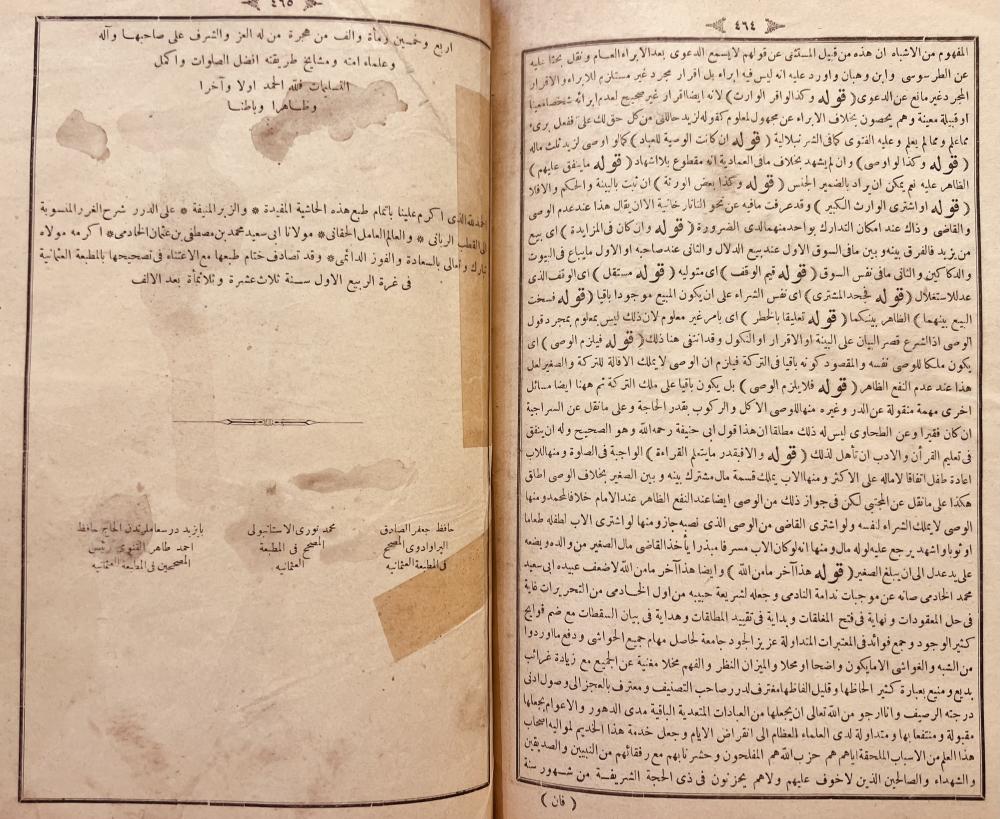 ٤٦٤
المفهوم من الاشباه ان هذه من قبيل المستثنى عن قولهم لايسمع الدعوى بعد الابراء العام ونقل بحثا عليه
عن الطرسوسى وابن وهبان واورد عليه انه ليس فيه ابراء بل اقرار مجرد غير مستلزم للابراء والاقرار
المجرد غير مانع عن الدعوى ( قوله وكذا لو اقر الوارث ) لانه ايضا اقرار غير صحيح لعدم ابرائه شخصا معينا
او قبيلة معينة وهم يحصون بخلاف الابراء عن مجهول لمعلوم كقوله لزيد حاللنى من كل حق لك على ففعل برئ
مما علم ومما لم يعلم وعليه الفتوى كما فى الشرنبلالية ( قوله ان كانت الوصية للعباد ) كما لو اوصى لزيد ثلث ماله
( قوله وكذا لو اوصى ) وان لم يشهد بخلاف ما فى العمادية انه مقطوع بلا اشهاد ( قوله ما ينفق عليهم )
الظاهر عليه نعم يمكن ان يراد بالضمير الجنس ( قوله وكذا بعض الورثة ) ان ثبت بالبينة والحكم والافلا
( قوله او اشترى الوارث الكبير ) وقد عرفت مافيه عن نحو التاتارخانية الا ان يقال هذا عند عدم الوصى
والقاضى وذاك عند امكان التدارك بواحد منهما لدى الضرورة ( قوله وان كان فى المزايدة ) اى بيع
من يزيد فالفرق بينه وبين ما فى السوق الاول عند بيع الدلال والثانى عند صاحبه او الاول ما يباع فى البيوت
والدكاكين والثانى ما فى نفس السوق ( قوله قيم الوقف ) اى متوليه ( قوله مستقل ) اى الوقف الذى
عد للاستغلال ( قوله فجحد المشترى ) اى نفس الشراء على ان يكون المبيع موجودا باقيا ( قوله فسخت
البيع بينهما ) الظاهر بينكما ( قوله تعليقا بالخطر ) اى بامر غير معلوم لان ذلك ليس بمعلوم بمجرد قول
الوصى اذ الشرع قصر البيان على البينة او الاقرار او النكول وقد انتفى هنا ذلك ( قوله فيلزم الوصى ) اى
يكون ملكا للوصى نفسه والمقصود كونه باقيا فى التركة فيلزم ان الوصى لايملك الاقالة للتركة والصغير لعل
هذا عند عدم النفع الظاهر ( قوله فلا يلزم الوصى ) بل يكون باقيا على ملك التركة ثم ههنا ايضا مسائل
اخرى مهمة منقولة عن الدر وغيره منها للوصى الاكل والركوب بقدر الحاجة وعلى مانقل عن السراجية
ان كان فقيرا وعن الطحاوى ليس له ذلك مطلقا ان هذا قول ابى حنيفة رحمه الله وهو الصحيح وله ان ينفق
فى تعليم القرأن والادب ان تأهل لذلك ( قوله والافبقدر مايتعلم القراءة ) الواجبة فى الصلوة ومنها للاب
اعادة طفل اتفاقا لاماله على الاكثر ومنها الاب يملك قسمة مال مشترك بينه وبين الصغير بخلاف الوصى اطلق
هكذا على مانقل عن المجتبى لكن فى جواز ذلك من الوصى ايضا عند النفع الظاهر عند الامام خلافا لمحمد ومنها
الوصى لايملك الشراء لنفسه ولو اشترى القاضى من الوصى الذى نصبه جاز ومنها لو اشترى الاب لطفله طعاما
او ثوبا واشهد يرجع عليه لو له مال ومنها انه لو كان الاب مسرفا مبذرا يأخذ القاضى مال الصغير من والده ويضعه
على يد عدل الى ان يبلغ الصغير ( قوله هذا آخر مامن الله ) وايضا هذا آخر مامن الله لاضعف عبيده ابى سعيد
محمد الخادمى صانه عن موجبات ندامة النادمى وجعله لشريعة حبيبه من اول الخادمى من التحريرات غاية
فى حل المعقودات ونهاية فى فتح المغلقات وبداية فى تقييد المطلقات وهداية فى بيان السقطات مع ضم فوايح
كثير الوجود وجمع فوائد فى المعتبرات المتداولة عزيز الجود جامعة لحاصل مهام جميع الحواشى ودفع ما اوردوا
من الشبه والغواشى الا مايكون واضحا او محلا والميزان النظر والفهم مخلا مغنية عن الجميع مع زيادة غرائب
بديع ومنيع بعبارة كثير الحاظها وقليل الفاظها مغترف لدرر صاحب التصنيف ومعترف بالعجز الى وصول ادنى
درجته الرصيف وانا ارجو من الله تعالى ان يجعلها من العبادات المتعدية الباقية مدى الدهور والاعوام يجعلها
مقبولة ومنتفعا بها ومتداولة لدى العلماء العظام الى انقراض الايام وجعل خدمة هذا الخديم لمواليه اصحاب
هذا العلم من الاسباب الملحقة اياهم هم حزب الله هم المفلحون وحشرنا بهم مع رفقائهم من النبيين والصديقين
والشهداء والصالحين الذين لاخوف عليهم ولاهم يحزنون فى ذى الحجة الشريفة من شهور سنة
( فان )
٤٦٥
اربع وخمسين ومأة والف من هجرة من له العز والشرف على صاحبها وآله
وعلماء امته ومشايخ طريقته افضل الصلوات واكمل
التسليمات فلله الحمد اولا وآخرا
وظاهرا وباطنا
الحمد لله الذى اكرم علينا باتمام طبع هذه الحاشية المفيدة * والزبر المنيفة * على الدرر شرح الغرر المنسوبة
الى القطب الربانى * والعالم العامل الحقانى * مولانا ابى سعيد محمد بن مصطفى بن عثمان الخادمى * اكرمه مولاه
تبارك وتعالى بالسعادة والفوز الدائمى * وقد تصادف ختام طبعها مع الاعتناء فى تصحيحها بالمطبعة العثمانية
فى غرة الربيع الاول سنة ثلاث عشرة وثلاثمأة بعد الالف
حافظ جعفر الصادق
البراوادوى المصحح
فى المطبعة العثمانيه
محمد نورى الاستانبولى
المصحح فى المطبعة
العثمانيه
بايزيد درسعاملرندن الحاج حافظ
احمد طاهر القنوى رئيس
المصححين فى المطبعة العثمانيه